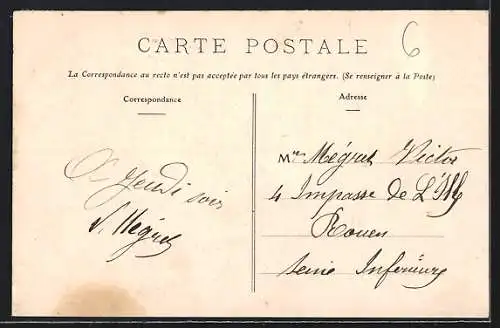 6
CARTE POSTALE
La Correspondance au recto n'est pas acceptée par tous les pays étrangers. (Se renseigner à la Poste)
Correspondance
Adresse
A Jeudi soir
Mr Victor
4 Impasse de
Rouen
Seine Inférieure